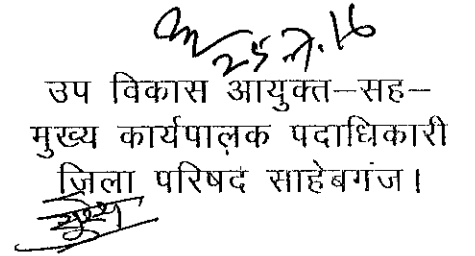 25.7.16
उप विकास आयुक्त–सह–
मुख्य कार्यपालक पदाधिकारी
जिला परिषद साहेबगंज।